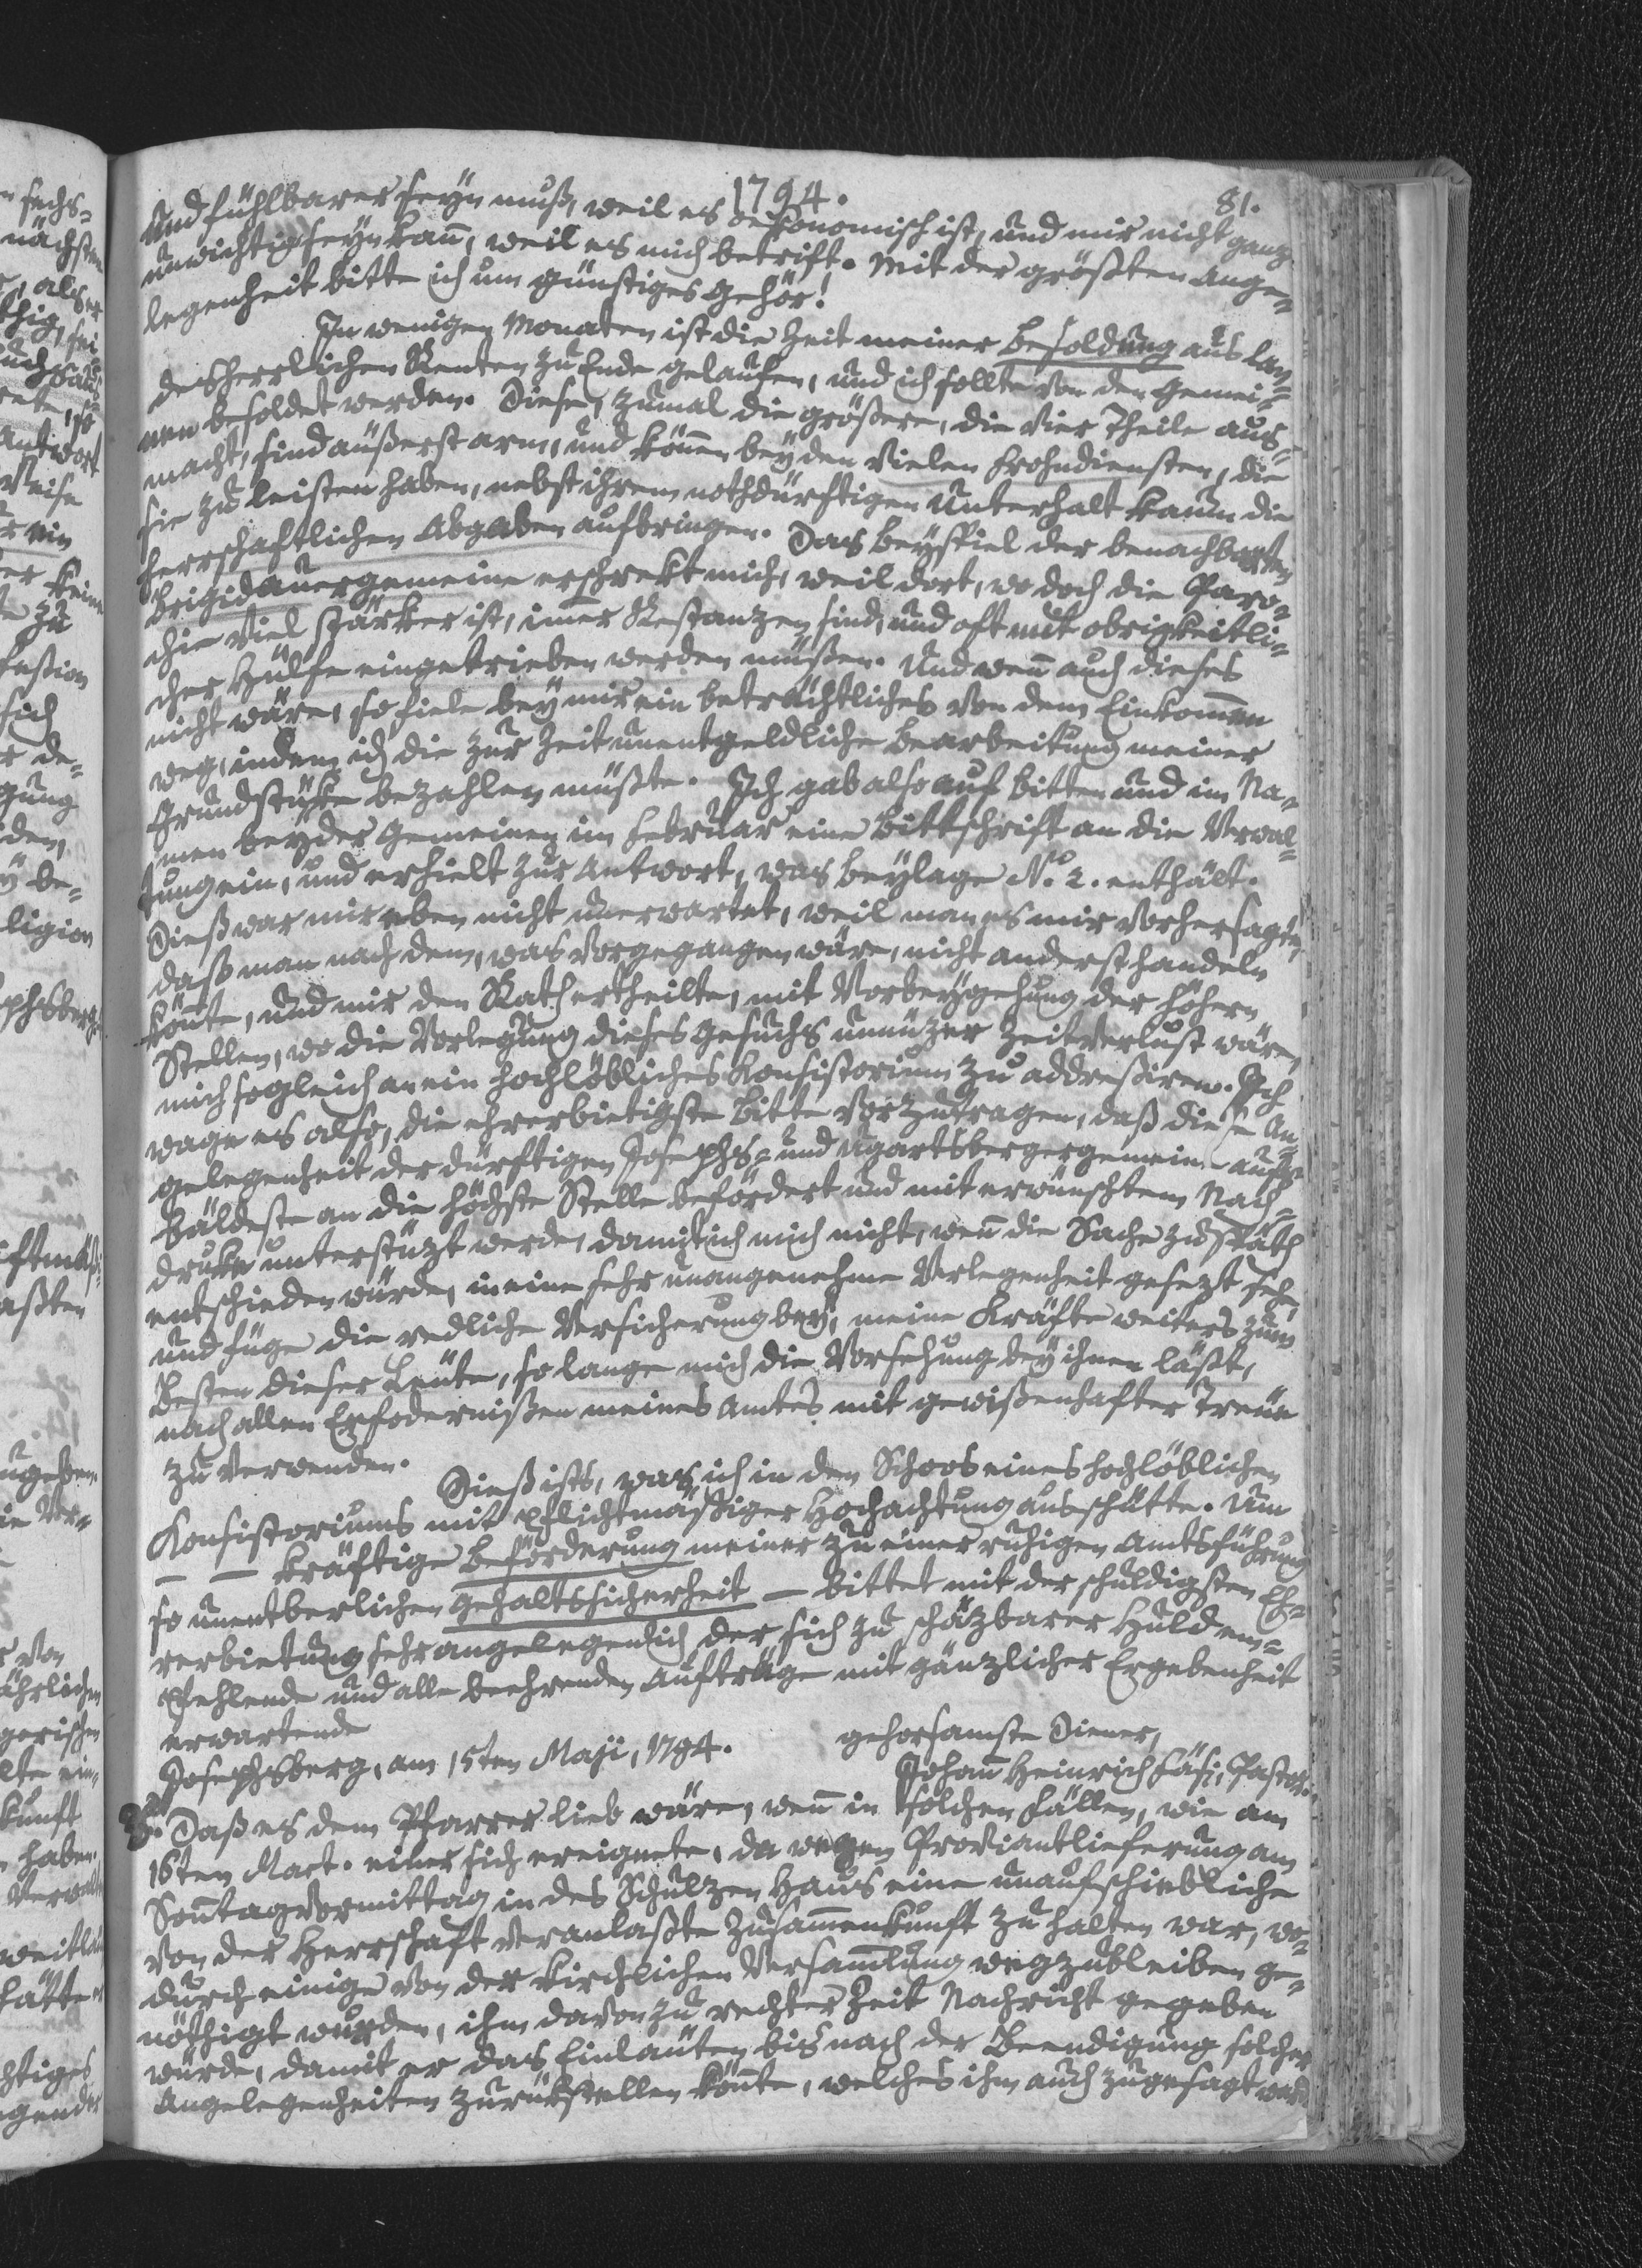 1794.
81.
und fühlbarer seyn muß, weil es oekonomisch ist, und mir nicht ganz
unwichtig seyn kann, weil es mich betrift. Mit der größten Ange=
legenheit bitte ich um günstiges Gehör!
In wenigen Monaten ist die Zeit meiner Besoldung aus lan=
desherrlichen Renten zu Ende gelaufen, und ich sollte von den Gemei=
nen besoldet werden. Diese, zumal die größere, die vier Theile aus=
macht, sind äußerst arm, und können bey den vielen Frohndiensten, die
sie zu leisten haben, nebst ihrem nothdürftigen Unterhalt kaum die
herrschaftlichen Abgaben aufbringen. Das Beyspiel der benachbarten
Brigidauergemeine erschrekt mich, weil dort, wo doch die Paro=
chie viel stärker ist, immer Restanzen sind, und oft mit obrigkeitli=
cher Hülfe eingetrieben werden müßen. Und wenn auch dieses
nicht wäre, so fiele bey mir ein beträchtliches von dem Einkommen
weg, indem ich die zur Zeit unentgeldliche Bearbeitung meiner
Grundstüke bezahlen müßte. Ich gab also auf Bitten und im Na=
men beyder Gemeinen im Februar eine Bittschrift an die Verwal=
tung ein, und erhielt zur Antwort, was Beylage No. 2. enthält.
Dieß war mir eben nicht unerwartet, weil man es mir vorhersagte,
daß man nach dem, was vorgegangen wäre, nicht anderst handeln
könnte, und mir den Rath ertheilte, mit Vorbeygehung der höhern
Stellen, wo die Vorlegung dieses Gesuchs unnüzer Zeitverlust wäre,
mich sogleich an ein hochlöbliches Konsistorium zu addreßiren. Ich
wage es also, die ehrerbietigste Bitte vorzutragen, daß diese An=
gelegenheit der dürftigen Josephs= und Ugartsbergergemeine aufs
bäldeste an die höchste Stelle befördert und mit erwünschtem Nach=
druke unterstüzt werde, damit ich mich nicht, wenn die Sache zu späth
entschieden würde, in eine sehr unangenehme Verlegenheit gesezt sehe,
und füge die redliche Versicherung bey, meine Kräfte weiters zum
Besten dieser Leute, so lange mich die Vorsehung bey ihnen läßt,
nach allen Erfodernißen meines Amtes mit gewißenhafter Treue
zu verwenden.
Dieß ists, was ich in den Schoos eines hochlöblichen
Konsistoriums mit pflichtmäßiger Hochachtung ausschütte. Um
— — kräftige Beförderung meiner zu einer ruhigen Amtsführung
so unentberlichen Gehaltssicherheit — bittet mit der schuldigsten Eh=
rerbietung sehr angelegenlich der sich zu schäzbarer Huld em=
pfehlende und alle beehrenden Aufträge mit gänzlicher Ergebenheit
erwartende
gehorsamste Diener,
Josephsberg, am 15ten Maji, 1794.
Johann Heinrich Fäsi, Pastor.
3. Daß es dem Pfarrer lieb wäre, wenn in solchen Fällen, wie am
16ten Mart. einer sich ereignete, da wegen Proviantlieferung am
Sonntagvormittag in des Schulzen Haus eine unaufschiebliche
von der Herrschaft veranlaßte Zusammenkunft zu halten war, wo=
durch einige von der kirchlichen Versammlung wegzubleiben ge=
nöthigt wurden, ihm davon zu rechter Zeit Nachricht gegeben
würde, damit er das Einläuten bis nach der Beendigung solcher
Angelegenheiten zurükstellen könnte, welches ihm auch zugesagt ward.